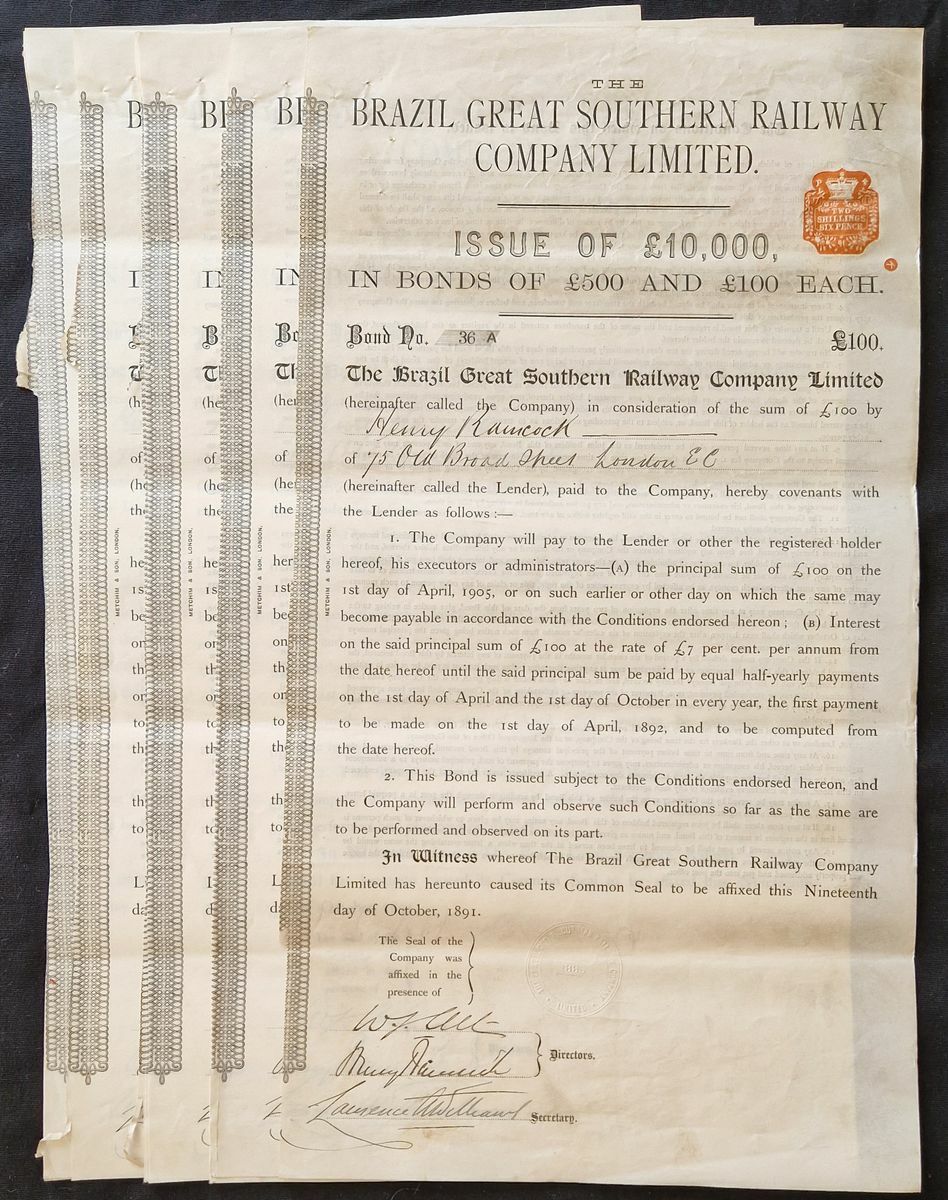 THE
BRAZIL GREAT SOUTHERN RAILWAY
COMPANY LIMITED.
TWO
SHILLINGS
SIX PENCE
ISSUE OF £10,000,
IN BONDS OF £500 AND £100 EACH.
Bond No. 36 A £100.
The Brazil Great Southern Railway Company Limited
(hereinafter called the Company) in consideration of the sum of £100 by
Henry
of 75 Old Broad Street London EC
(hereinafter called the Lender), paid to the Company, hereby covenants with
the Lender as follows :—
1. The Company will pay to the Lender or other the registered holder
hereof, his executors or administrators—(A) the principal sum of £100 on the
1st day of April, 1905, or on such earlier or other day on which the same may
become payable in accordance with the Conditions endorsed hereon ; (B) Interest
on the said principal sum of £100 at the rate of £7 per cent. per annum from
the date hereof until the said principal sum be paid by equal half-yearly payments
on the 1st day of April and the 1st day of October in every year, the first payment
to be made on the 1st day of April, 1892, and to be computed from
the date hereof.
2. This Bond is issued subject to the Conditions endorsed hereon, and
the Company will perform and observe such Conditions so far as the same are
to be performed and observed on its part.
In Witness whereof The Brazil Great Southern Railway Company
Limited has hereunto caused its Common Seal to be affixed this Nineteenth
day of October, 1891.
The Seal of the
Company was
affixed in the
presence of
LIMITED
W. J. Alt
Directors.
Secretary.
METCHIM & SON, LONDON.
METCHIM & SON, LONDON.
METCHIM & SON, LONDON.
METCHIM & SON, LONDON.